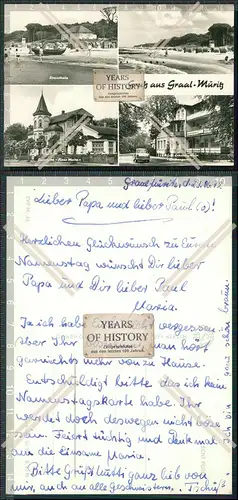 Strandhalle
YEARS
OF HISTORY
Zeitgeschichte
aus den letzten 100 Jahren
aus Graal-Müritz
Graal-Müritz, d.
Lieber Papa und lieber Paul (a)!
Herzlichen Glückwunsch zu Eurem
Namenstag wünscht Dir lieber
Papa und Dir lieber Paul
Maria.
Ja ich habe vergessen
Ihr man hört
garnichts mehr von zu Hause.
Entschuldigt bitte das ich keine
Namenstagskarte habe. Ihr
werdet doch deswegen nicht böse
sein. Feiert tüchtig und denkt mal
an die einsame Maria.
Bitte Grüßt Mutti ganz lieb von
mir, auch an alle Geschwistern. Tschüß
YEARS
OF HISTORY
Zeitgeschichte
aus den letzten 100 Jahren
bin ganz schön braun.